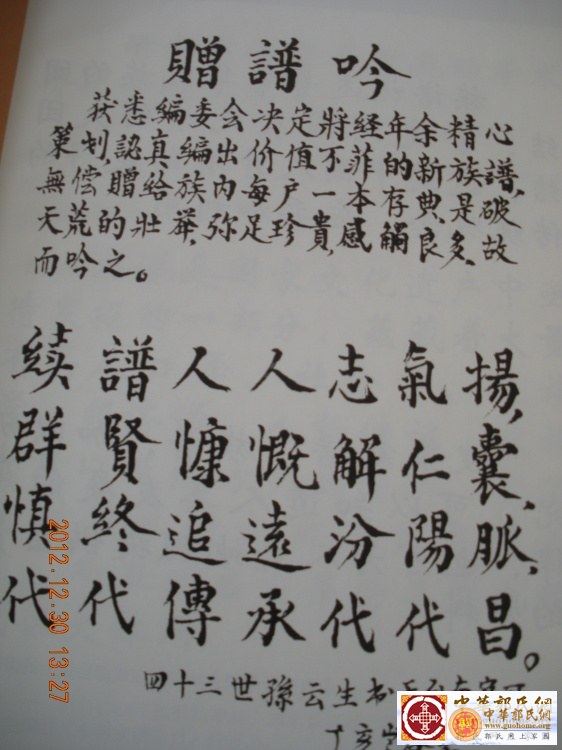 贈譜吟
获悉編委会决定將经年余精心
策划,認真編出价值不菲的新族譜,
無偿贈给族内每户一本存典,是破
天荒的壮舉,弥足珍貴,感觸良多,故
而吟之。
續譜人人志氣揚,
群賢慷慨解仁囊,
慎終追遠汾陽脈,
代代傳承代代昌。
四十三世孫云生书
丁亥
2012.12.30 13:27
中華郭氏網
中華郭氏網
www.guohome.org
郭氏网上家園